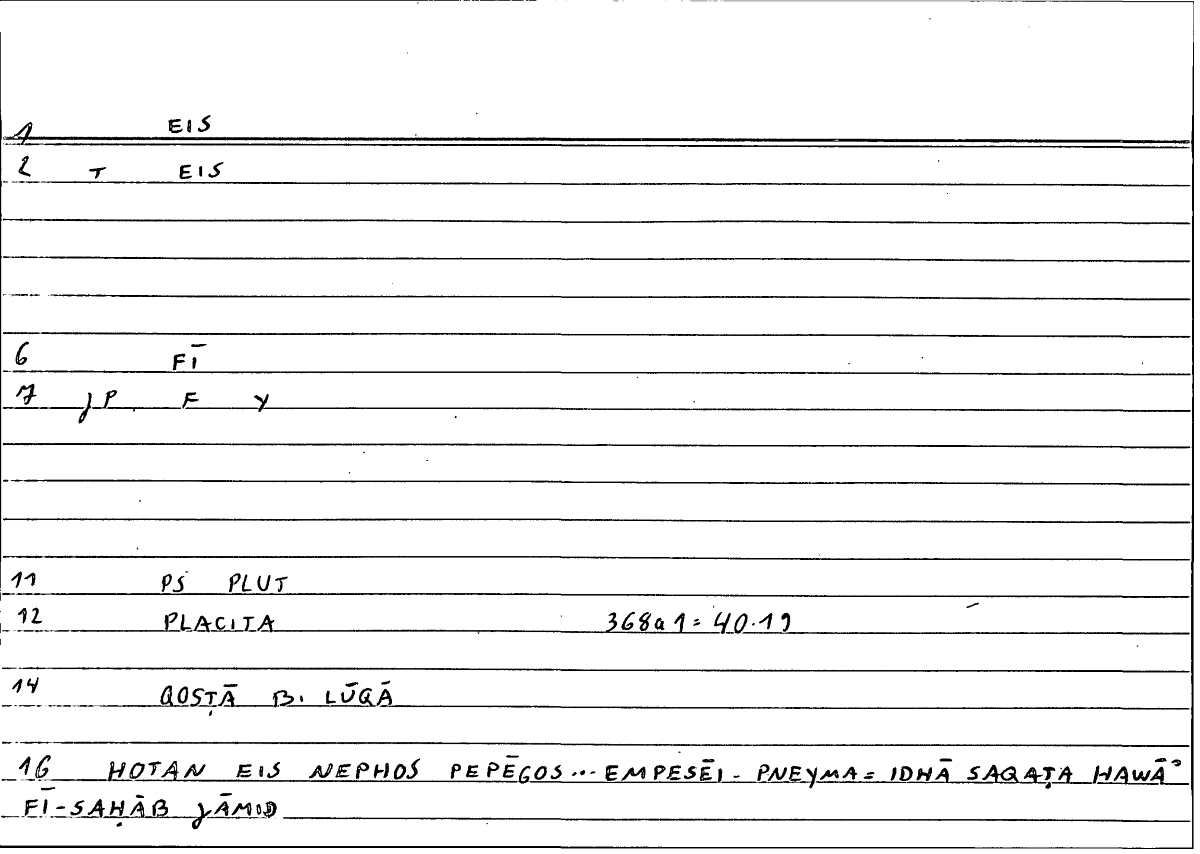 1 EIS
2 T EIS
6 FĪ
7 JP F Y
11 PS PLUT
12 PLACITA 368a1 = 40.19
14 QOSṬĀ B. LŪQĀ
16 HOTAN EIS NEPHOS PEPĒGOS... EMPESĒI - PNEYMA = IDHĀ SAQAṬA HAWĀʾ
FĪ-SAḤĀB JĀMID